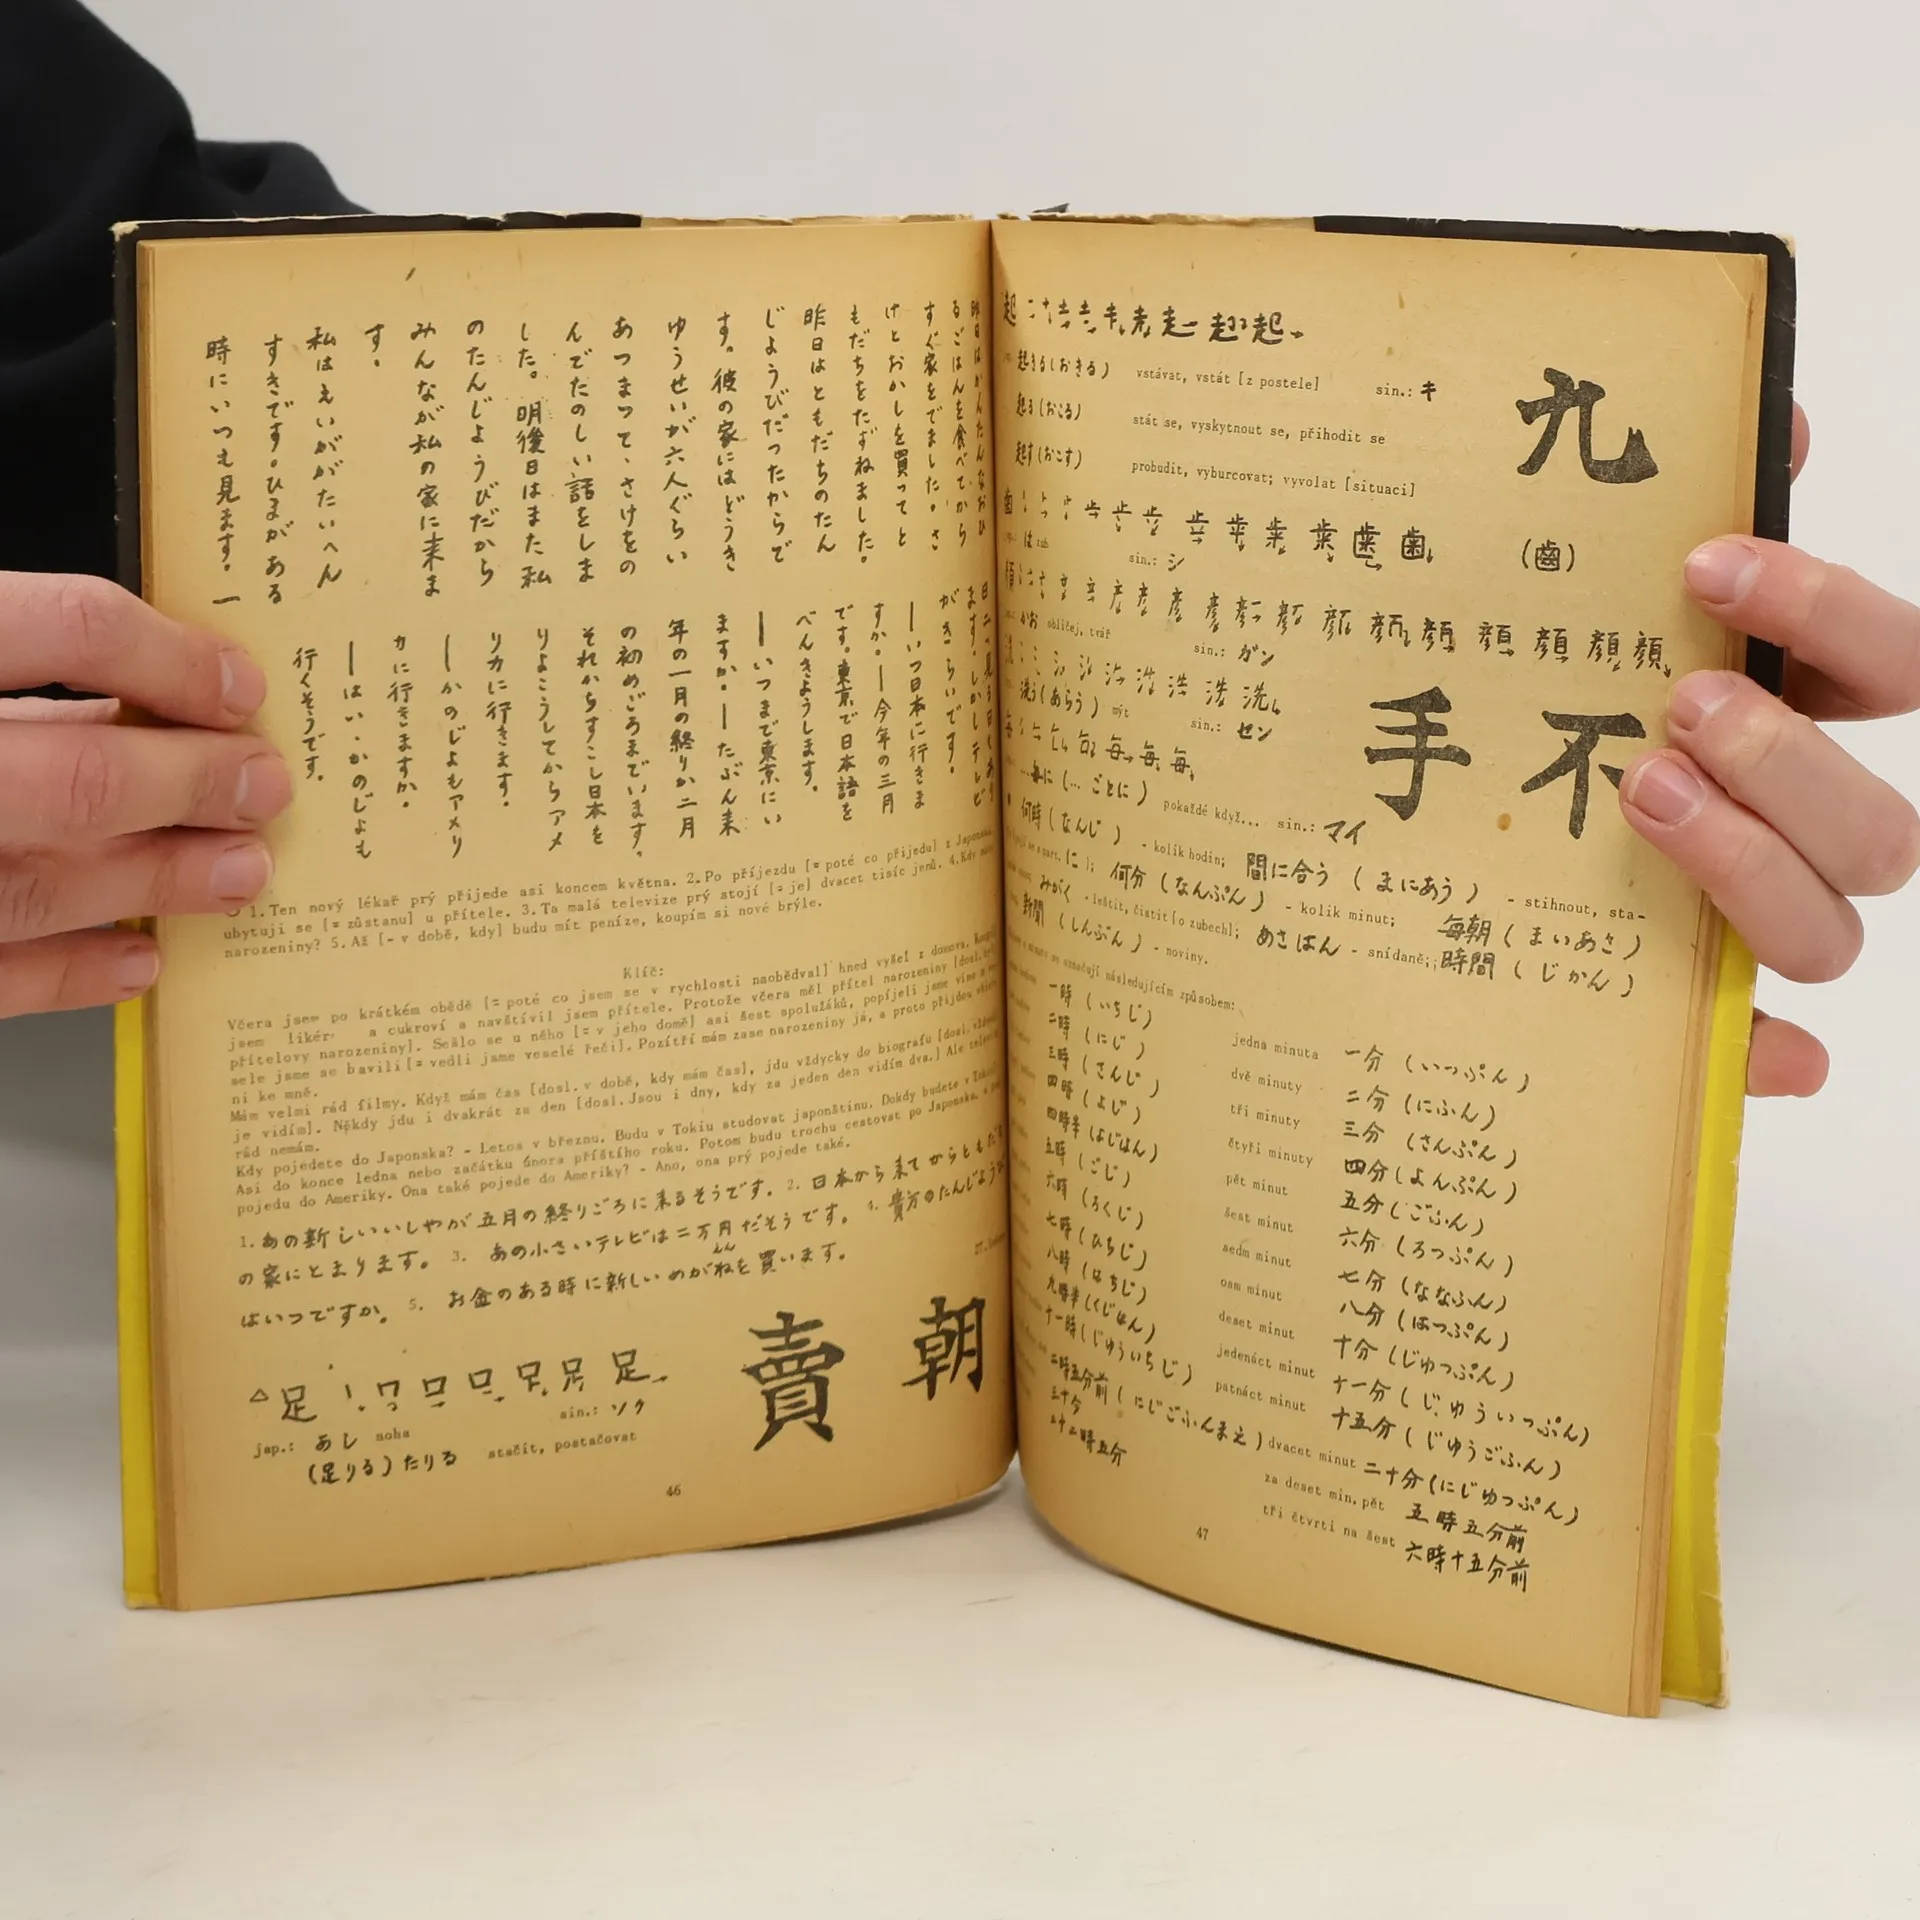 昨日はかんたんなおひ
るごはんを食べてから
すぐ家をでました。さ
けとおかしを買ってと
もだちをたずねました。
昨日はともだちのたん
じょうびだったからで
す。彼の家にはどうき
ゆうせいが六人ぐらい
あつまって、さけをの
んでたのしい話をしま
した。明後日はまた私
のたんじょうびだから
みんなが私の家に来ま
す。
私はえいががたいへん
すきです。ひまがある
時にいつも見ます。一
日二つ見る日もあり
ます。しかしテレビ
がきらいです。
—いつ日本に行きま
すか。—今年の三月
です。東京で日本語を
べんきょうします。
—いつまで東京にい
ますか。—たぶん来
年の一月の終りか二月
の初めごろまでいます。
それからすこし日本を
りょこうしてからアメ
リカに行きます。
—かのじょもアメリ
カに行きますか。
—はい、かのじょも
行くそうです。
1.Ten nový lékař prý přijede asi koncem května. 2.Po příjezdu [= poté co přijedu] z Japonska
ubytuji se [= zůstanu] u přítele. 3.Ta malá televize prý stojí [= je] dvacet tisíc jenů. 4.Kdy
narozeniny? 5.Až [- v době, kdy] budu mít peníze, koupím si nové brýle.
Klíč:
Včera jsem po krátkém obědě [= poté co jsem se v rychlosti naobědval] hned vyšel z domova.
jsem likér a cukroví a navštívil jsem přítele. Protože včera měl přítel narozeniny
přítelovy narozeniny]. Sešlo se u něho [= v jeho domě] asi šest spolužáků, popíjeli jsme víno a
sele jsme se bavili [= vedli jsme veselé řeči]. Pozítří mám zase narozeniny já, a proto přijdou
ni ke mně.
Mám velmi rád filmy. Když mám čas [dosl. v době, kdy mám čas], jdu vždycky do biografu [dosl.
je vidím]. Někdy jdu i dvakrát za den [dosl. Jsou i dny, kdy za jeden den vidím dva.] Ale
rád nemám.
Kdy pojedete do Japonska? - Letos v březnu. Budu v Tokiu studovat japonštinu. Dokdy budete v
Asi do konce ledna nebo začátku února příštího roku. Potom budu trochu cestovat po Japonsku, a
pojedu do Ameriky. Ona také pojede do Ameriky? - Ano, ona prý pojede také.
1. あの新しいいしゃが五月の終りごろに来るそうです。 2. 日本から来てからともだち
の家にとまります。 3. あの小さいテレビは二万円だそうです。 4. 貴方のたんじょうび
はいつですか。 5. お金のある時に新しいめがねを買います。
△足 足
jap.: あし noha sin.: ソク
(足りる)たりる stačit, postačovat
賣 朝
46
起 走 起
起きる(おきる) vstávat, vstát [z postele] sin.: キ
起る(おこる) stát se, vyskytnout se, přihodit se
起す(おこす) probudit, vyburcovat; vyvolat [situaci]
九
歯 歯 (齒)
は zub sin.: シ
顔 顔
かお obličej, tvář sin.: ガン
洗
洗う(あらう) mýt sin.: セン
毎 毎
…毎に(… ごとに) pokaždé když... sin.: マイ
手 不
何時(なんじ) - kolik hodin; 間に合う(まにあう) - stihnout, sta-
に); 何分(なんぷん) - kolik minut; 毎朝(まいあさ)
みがく - leštit, čistit [o zubech]; あさはん - snídaně; 時間(じかん)
新聞(しんぶん) - noviny.
se označují následujícím způsobem:
一時(いちじ)
二時(にじ)
三時(さんじ)
四時(よじ)
四時半(よじはん)
五時(ごじ)
六時(ろくじ)
七時(ひちじ)
八時(はちじ)
九時半(くじはん)
十一時(じゅういちじ)
二時五分前(にじごふんまえ)
三十分
二十二時五分
jedna minuta 一分(いっぷん)
dvě minuty 二分(にふん)
tři minuty 三分(さんぷん)
čtyři minuty 四分(よんぷん)
pět minut 五分(ごふん)
šest minut 六分(ろっぷん)
sedm minut 七分(ななふん)
osm minut 八分(はっぷん)
deset minut 十分(じゅっぷん)
jedenáct minut 十一分(じゅういっぷん)
patnáct minut 十五分(じゅうごふん)
dvacet minut 二十分(にじゅっぷん)
za deset min. pět 五時五分前
tři čtvrti na šest 六時十五分前
47